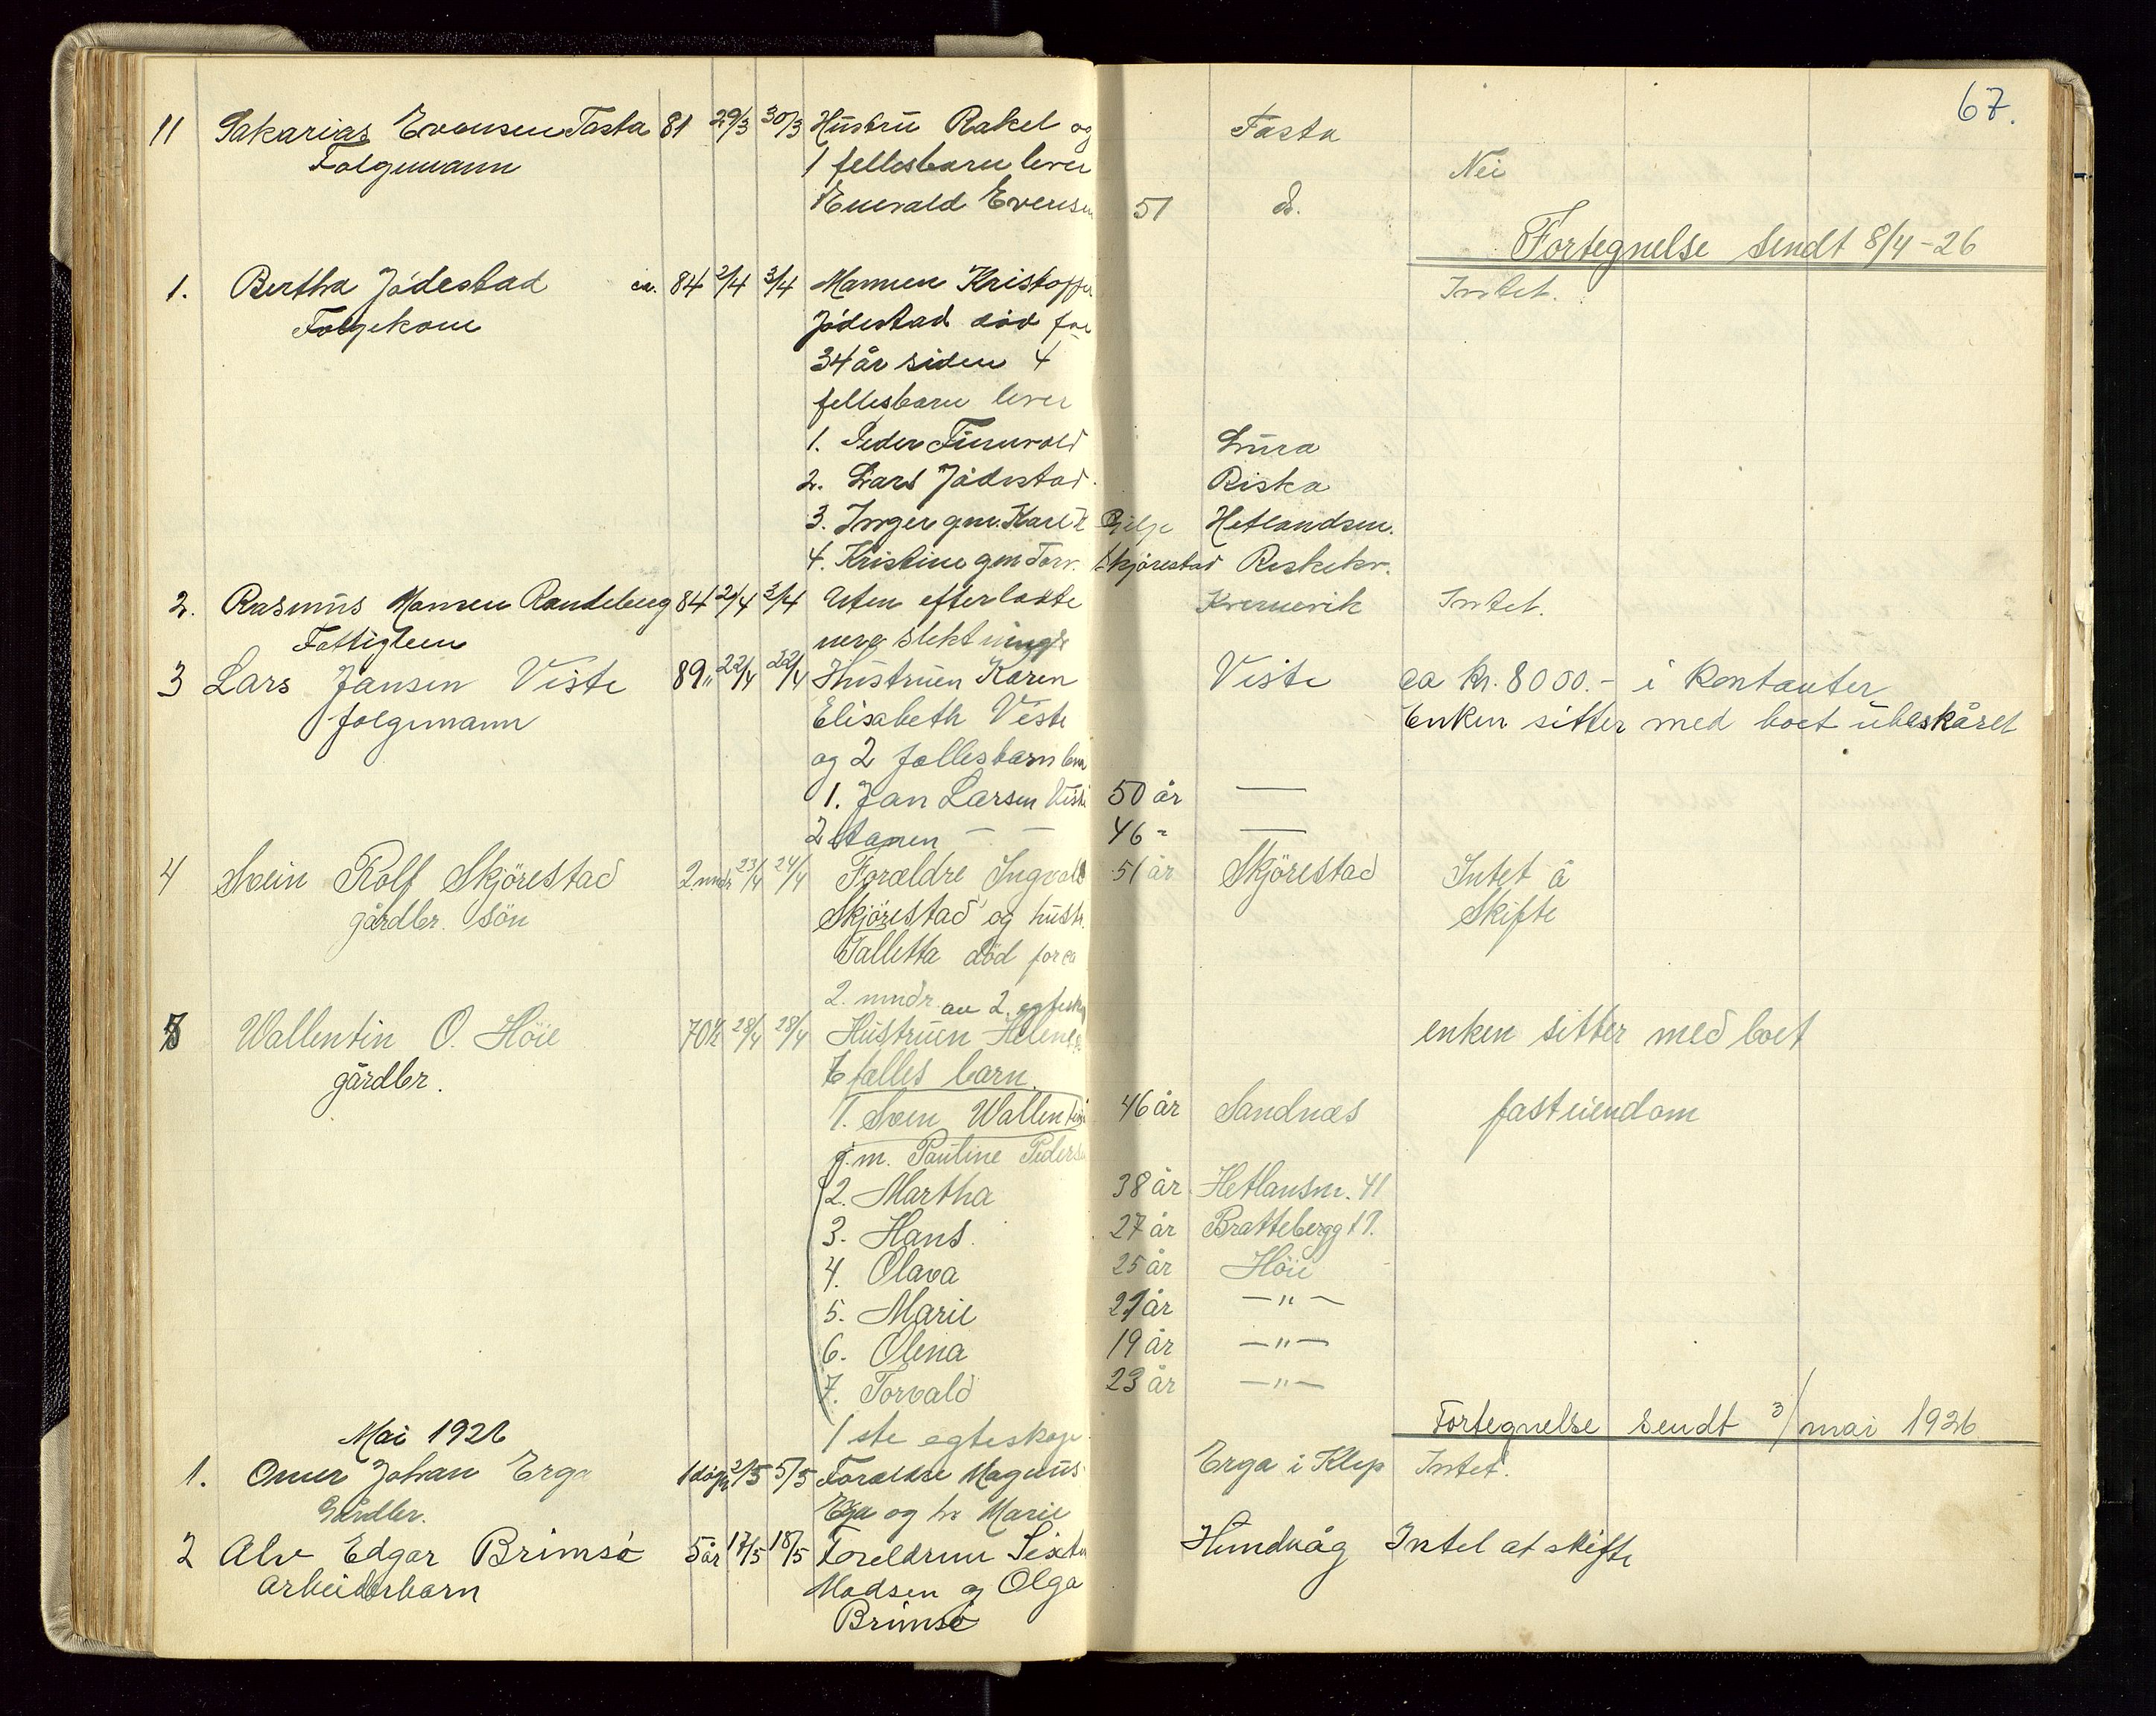 67.
11 Sakarias Evensen Tasta 81 29/3 30/3 Hustru Rakel og Tasta
Folgemann 1 fellesbarn lever Nei
Enevald Evensen 51 d.
Fortegnelse sendt 8/4-26
1. Bertha Jödestad ca. 84 2/4 3/4 Mannen Kristoffer Intet.
Folgekone Jödestad död for
34 år siden 4
fellesbarn lever
1. Peder Lura
2. Lars Jödestad. Riska
3. Inger gm. Karl Gilje Hetlandsm.
4. Kristine gm Torv. Skjörestad Riskekv.
2. Rasmus Hansen Randeberg 84 2/4 3/4 Uten efterlatte Kvernevik Intet.
Fattiglem nere slektninge
3 Lars Jansen Viste 89 " 22/4 22/4 Hustruen Karen Viste ca kr. 8000.- i kontanter
folgemann Elisabeth Viste Enken sitter med boet ubeskåret
og 2 fællesbarn leve
1. Jan Larsen Viste 50 år —
2 — — 46 " —
4 Svein Rolf Skjörestad 2 mndr 23/4 24/4 Forældre Ingvald 51 år Skjörestad Intet å
gårdbr. sön Skjörestad og hustr. Skifte
Talletta död for ca
2. mndr. av 2. egtesk
5 Wallentin O. Höie 70 1/2 28/4 28/4 Hustruen Helene enken sitter med boet
gårdbr. fælles barn.
1. Sven Wallentin 46 år Sandnæs fasteiendom
g.m. Pauline Peders
2. Martha 38 år Hetlansm. 41
3. Hans. 27 år Brattebergg 17.
4. Olava 25 år Höie
5. Marie 21 år — " —
6. Olena 19 år — " —
7. Torvald 23 år — " —
1 ste egteskap. Fortegnelse sendt 3/ mai 1926
Mai 1926
1. Omer Johan Erga 1 dögn 2/5 5/5 Forældre Magnus Erga i Klep Intet.
Gårdbr. Erga og hr Marie
2 Alv Edgar Brimsö 5 år 17/5 18/5 Foreldrene Sixtus Hundvåg Intet at skifte
arbeiderbarn Madsen og Olga
Brimsö